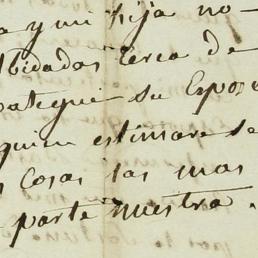 a y mi hija no-
lbidadas cerca de
pategui su Espos
quien estimare se
s cosas las mas
parte nuestra.